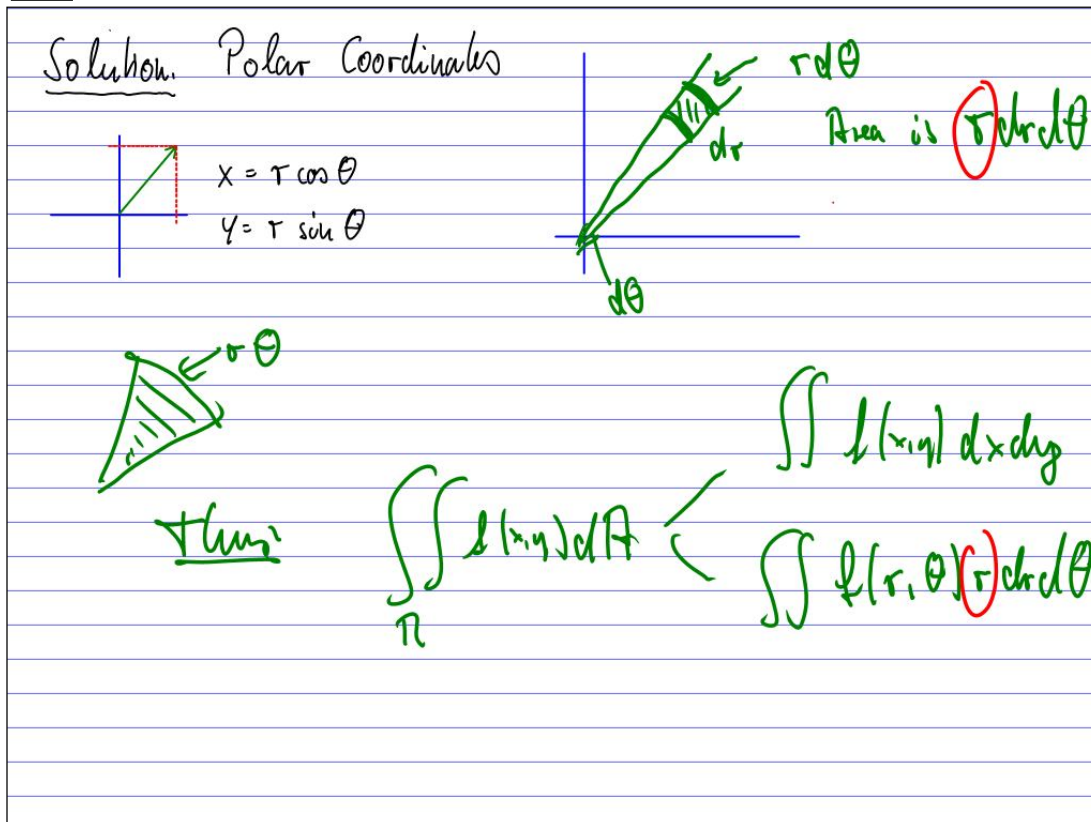 Solution. Polar Coordinates
x = r cos θ
y = r sin θ
r dθ
dr
Area is r dr dθ
dθ
r θ
Thus:
∬ f(x,y) dA
R
∬ f(x,y) dx dy
∬ f(r, θ) r dr dθ